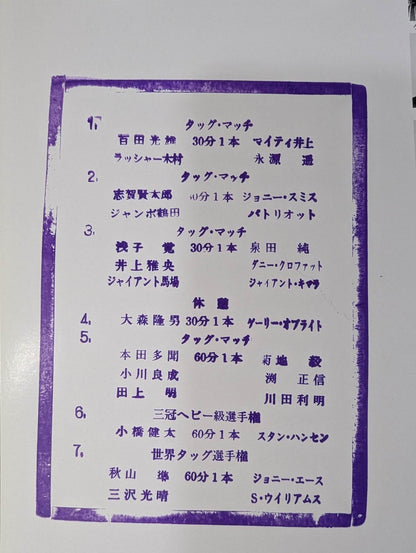 1. タッグ・マッチ
百田光雄 30分1本 マイティ井上
ラッシャー木村 永源 遥
2. タッグ・マッチ
志賀賢太郎 30分1本 ジョニー・スミス
ジャンボ鶴田 パトリオット
3. タッグ・マッチ
浅子 覚 30分1本 泉田 純
井上雅央 ダニー・クロファット
ジャイアント馬場 ジャイアント・キマラ
休憩
4. 大森隆男 30分1本 ゲーリー・オブライト
5. タッグ・マッチ
本田多聞 60分1本 菊地 毅
小川良成 渕 正信
田上 明 川田利明
6. 三冠ヘビー級選手権
小橋健太 60分1本 スタン・ハンセン
7. 世界タッグ選手権
秋山 準 60分1本 ジョニー・エース
三沢光晴 S・ウイリアムス